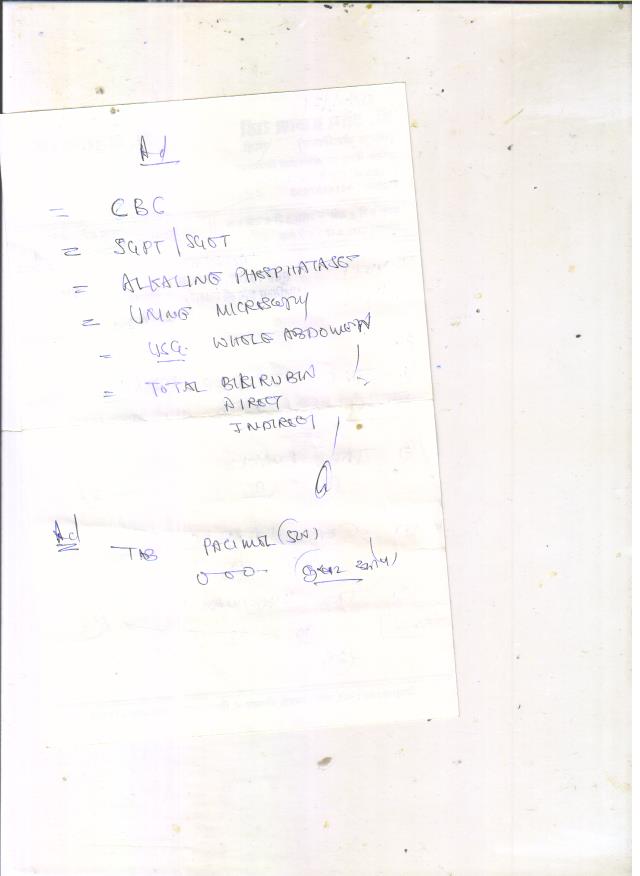 Ad
= CBC
= SGPT / SGOT
= ALKALINE PHOSPHATASE
= URINE MICROSCOPY
= USG. WHOLE ABDOMEN
= TOTAL BILIRUBIN
DIRECT
INDIRECT
Ad
TAB PACIMOL (500)